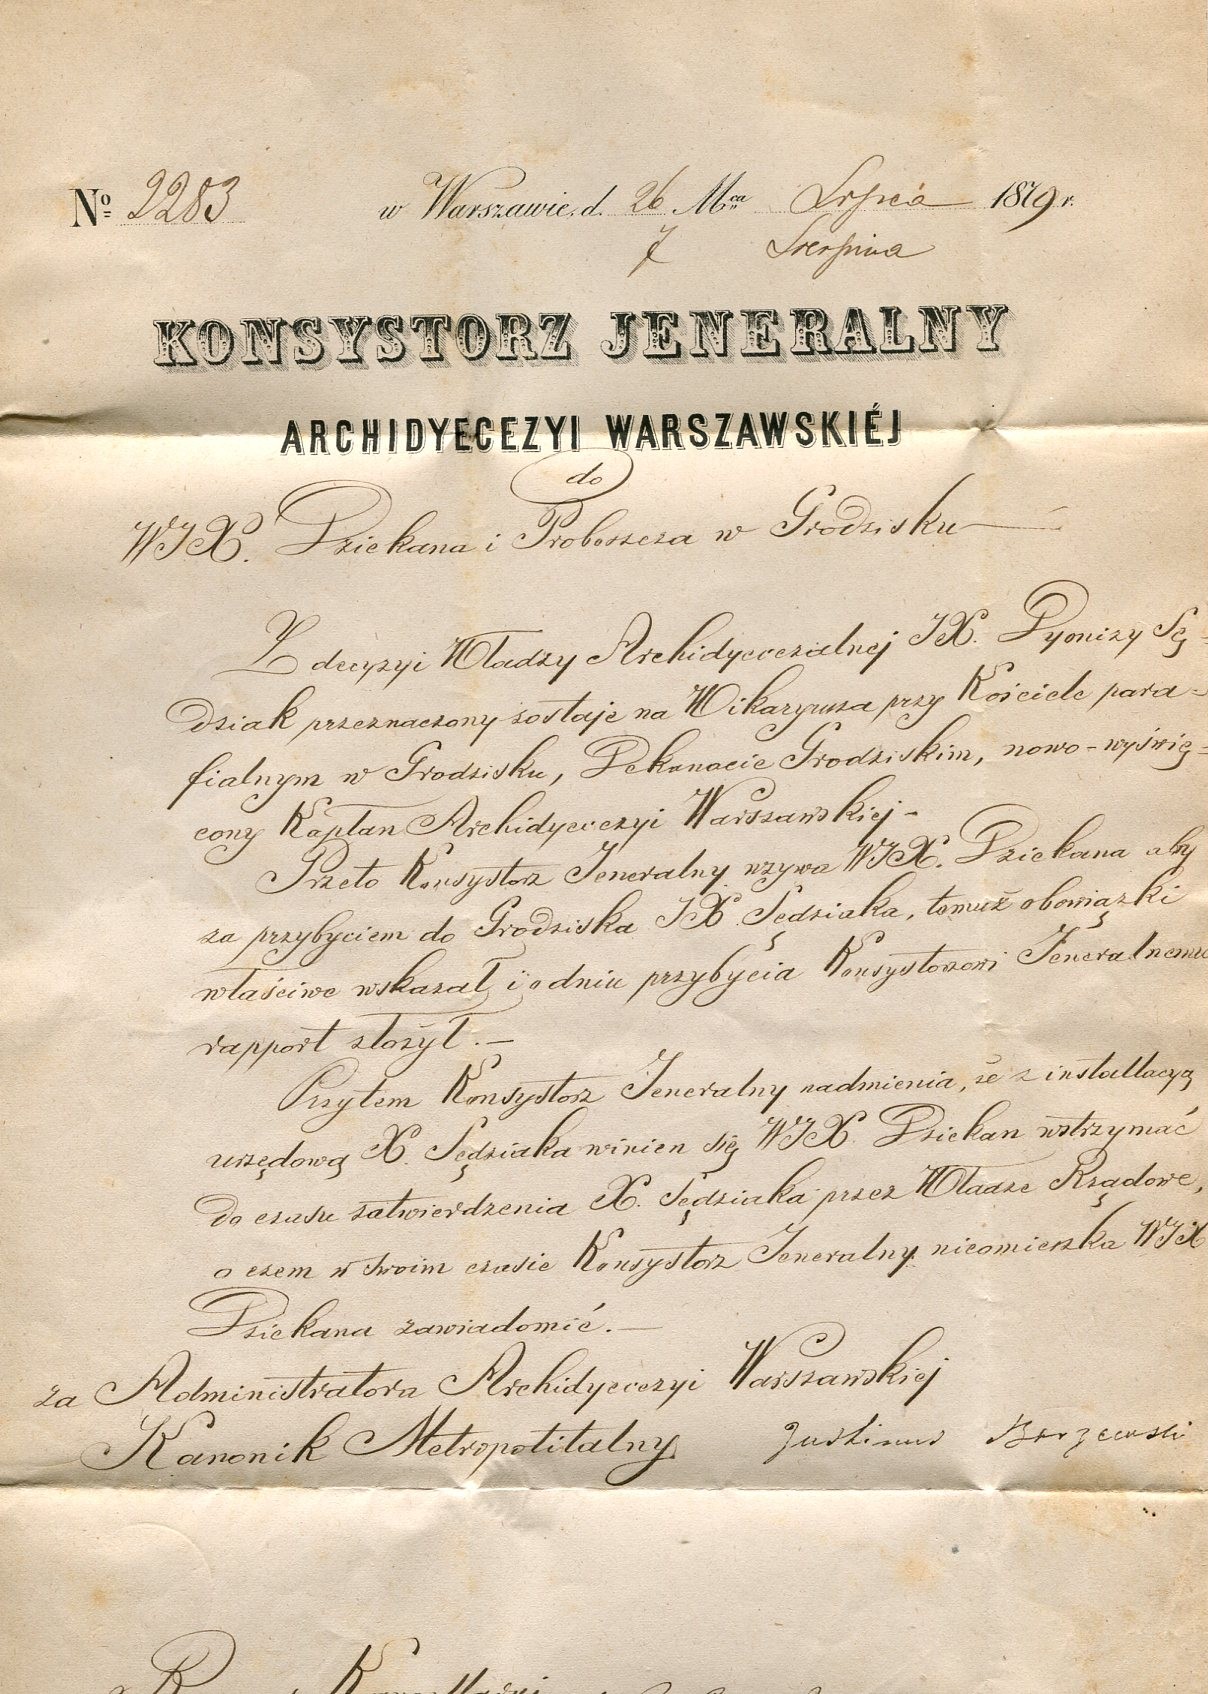 № 2283 w Warszawie. d. 26 Mca Lipca 1879 r.
7 Sierpnia
KONSYSTORZ JENERALNY
ARCHIDYECEZYI WARSZAWSKIÉJ
do
WJX. Dziekana i Proboszcza w Grodzisku
Z decyzyi Władzy Archidyecezialnej JX. Dyonizy Sę-
dziak przeznaczony zostaje na Wikaryusza przy Kościele para-
fialnym w Grodzisku, Dekanacie Grodziskim, nowo-wyświę-
cony Kapłan Archidyecezyi Warszawskiej –
Przeto Konsystorz Jeneralny wzywa WJX. Dziekana aby
za przybyciem do Grodziska JX Sędziaka, temuż obowiązki
właściwe wskazał i o dniu przybycia Konsystorzowi Jeneralnemu
rapport złożył. –
Przytem Konsystorz Jeneralny nadmienia, że z installacyą
urzędową X. Sędziaka winien się WJX Dziekan wstrzymać
do czasu zatwierdzenia X. Sędziaka przez Władze Rządowe,
o czem w swoim czasie Konsystorz Jeneralny nieomieszka WJX
Dziekana zawiadomić. –
za Administratora Archidyecezyi Warszawskiej
Kanonik Metropolitalny Justinus Borzewski